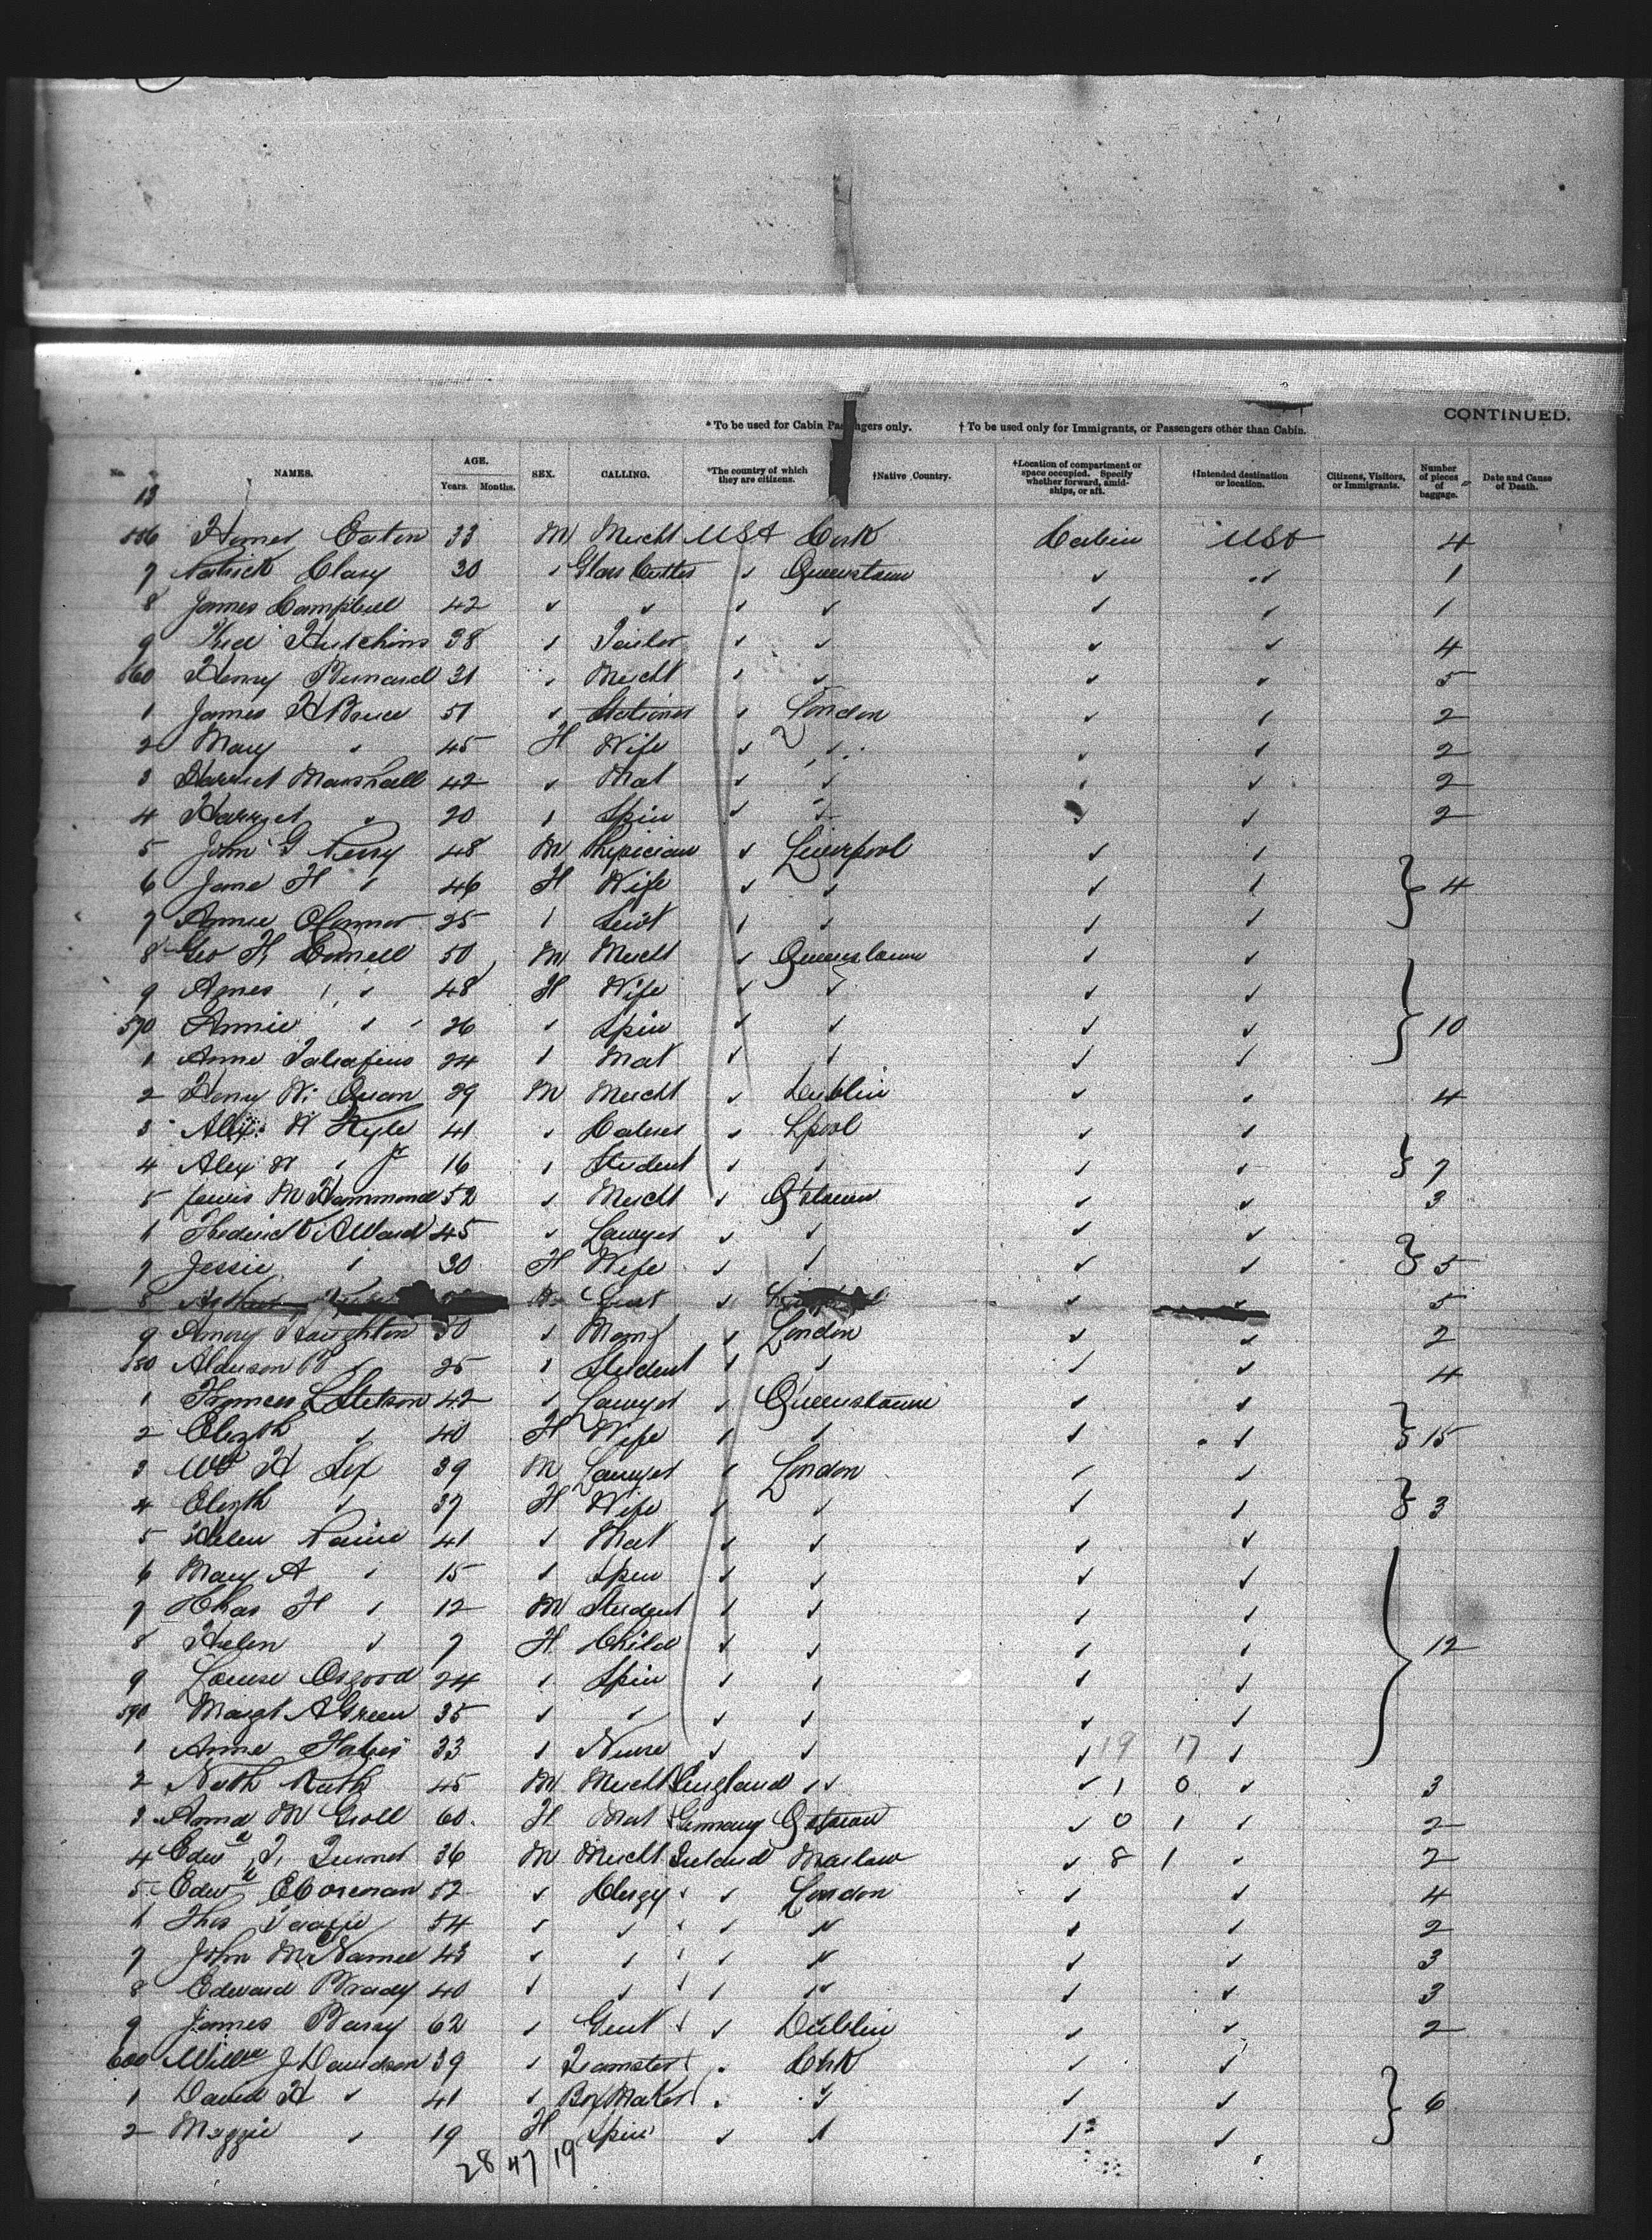 CONTINUED.
* To be used for Cabin Passengers only. † To be used only for Immigrants, or Passengers other than Cabin.
No. NAMES. AGE. Years. Months. SEX. CALLING. *The country of which they are citizens. †Native Country. †Location of compartment or space occupied. Specify whether forward, amidships, or aft. †Intended destination or location. Citizens, Visitors, or Immigrants. Number of pieces of baggage. Date and Cause of Death.
13
556 Homer Eaton 33 M Mercht USA Cork Cabin USA 4
7 Patrick Clary 30 ✓ Glass Cutter ✓ Queenstown ✓ ✓ 1
8 James Campbell 42 ✓ ✓ ✓ ✓ ✓ ✓ 1
9 Fred Hutchins 38 ✓ Tailor ✓ ✓ ✓ ✓ 4
560 Henry Bernard 31 ✓ Mercht ✓ ✓ ✓ ✓ 5
1 James H Bruce 51 ✓ Stationer ✓ London ✓ ✓ 2
2 Mary ✓ 45 F Wife ✓ ✓ ✓ ✓ 2
3 Harriet Marshall 42 ✓ Mat ✓ ✓ ✓ ✓ 2
4 Harriet ✓ 20 ✓ Spin ✓ ✓ ✓ ✓ 2
5 John G Perry 48 M Physician ✓ Liverpool ✓ ✓
6 Jane H ✓ 46 F Wife ✓ ✓ ✓ ✓ } 4
7 Annie OConnor 25 ✓ Servt ✓ ✓ ✓ ✓
8 Geo H 50 M Mercht ✓ Queenstown ✓ ✓
9 Agnes ✓ ✓ 48 F Wife ✓ ✓ ✓ ✓
570 Annie ✓ ✓ 26 ✓ Spin ✓ ✓ ✓ ✓ } 10
1 Anne 24 ✓ Mat ✓ ✓ ✓ ✓
2 Henry W. Quan 29 M Mercht ✓ Dublin ✓ ✓ 4
3 Alex W Kyle 41 ✓ ✓ Lpool ✓ ✓
4 Alex W ✓ Jr 16 ✓ Student ✓ ✓ ✓ ✓ } 7
5 Lewis M Hammond 52 ✓ Mercht ✓ Q'stown ✓ ✓ 3
6 Frederick A Ward 45 ✓ Lawyer ✓ ✓ ✓ ✓
7 Jessie ✓ 30 F Wife ✓ ✓ ✓ ✓ } 5
8 Gent ✓ ✓ ✓ 5
9 Amory Haughton 50 ✓ Manf ✓ London ✓ ✓ 2
580 Alderson B ✓ 25 ✓ Student ✓ ✓ ✓ ✓ 4
1 Frances L Stetson 42 ✓ Lawyer ✓ Queenstown ✓ ✓
2 Elizth ✓ 40 F Wife ✓ ✓ ✓ ✓ } 15
3 Wm H Lex 39 M Lawyer ✓ London ✓ ✓
4 Elizth ✓ 37 F Wife ✓ ✓ ✓ ✓ } 3
5 Helen Paine 41 ✓ Mat ✓ ✓ ✓ ✓
6 Mary A ✓ 15 ✓ Spin ✓ ✓ ✓ ✓
7 Chas H ✓ 12 M Student ✓ ✓ ✓ ✓
8 Helen ✓ 7 F Child ✓ ✓ ✓ ✓ } 12
9 Louise Osgood 24 ✓ Spin ✓ ✓ ✓ ✓
590 Margt A Green 35 ✓ ✓ ✓ ✓ ✓ ✓
1 Anne 33 ✓ Nurse ✓ ✓ ✓ 19 17 ✓
2 Nath 45 M Mercht England ✓✓ ✓ 1 0 ✓ 3
3 Anna M Groll 60 F Mat Germany Qstown ✓ 0 1 ✓ 2
4 Edwd T. Turner 36 M Mercht Ireland ✓ 8 1 ✓ 2
5 Edwd Corcoran 52 ✓ Clergy ✓ ✓ London ✓ ✓ 4
6 Thos 54 ✓ ✓ ✓ ✓ ✓ ✓ ✓ 2
7 John McNamee 43 ✓ ✓ ✓ ✓ ✓ ✓ ✓ 3
8 Edward Brady 40 ✓ ✓ ✓ ✓ ✓ ✓ ✓ 3
9 James Barry 62 ✓ Gent ✓ ✓ Dublin ✓ ✓ 2
600 Willm J Davidson 39 ✓ Teamster ✓ Cork ✓ ✓
1 David H ✓ 41 ✓ Box Maker ✓ ✓ ✓ ✓ } 6
2 Maggie ✓ 19 F Spin ✓ ✓ ✓
28 47 19